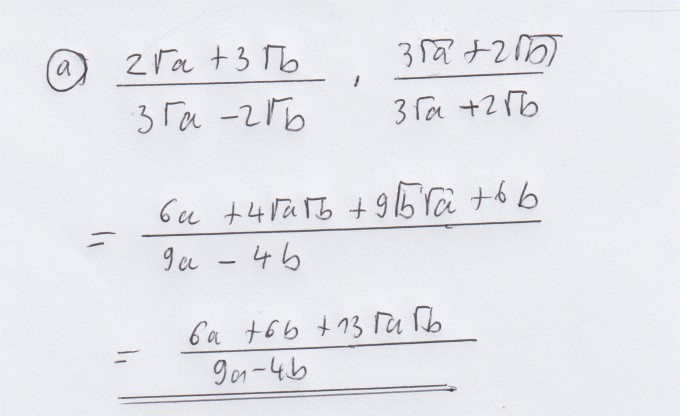 a) (2√a + 3√b)/(3√a - 2√b) · (3√a + 2√b)/(3√a + 2√b)
= (6a + 4√a√b + 9√b√a + 6b)/(9a - 4b)
= (6a + 6b + 13√a√b)/(9a - 4b)